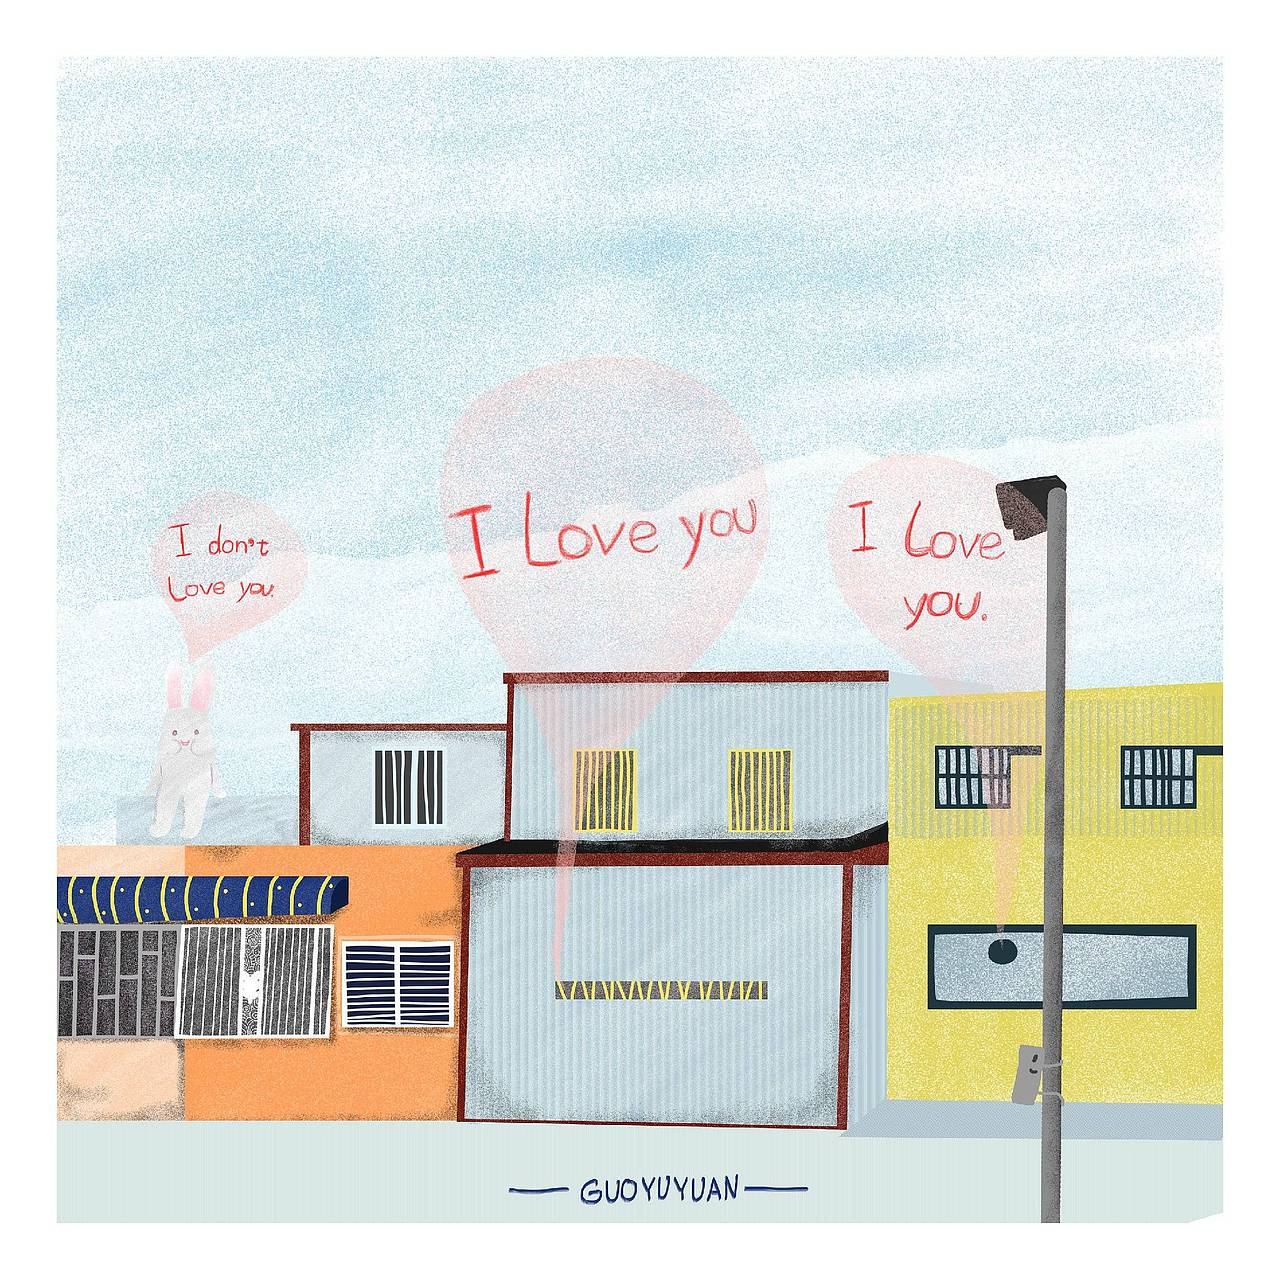 I don't
Love you.
I Love you
I Love
you.
GUOYUYUAN